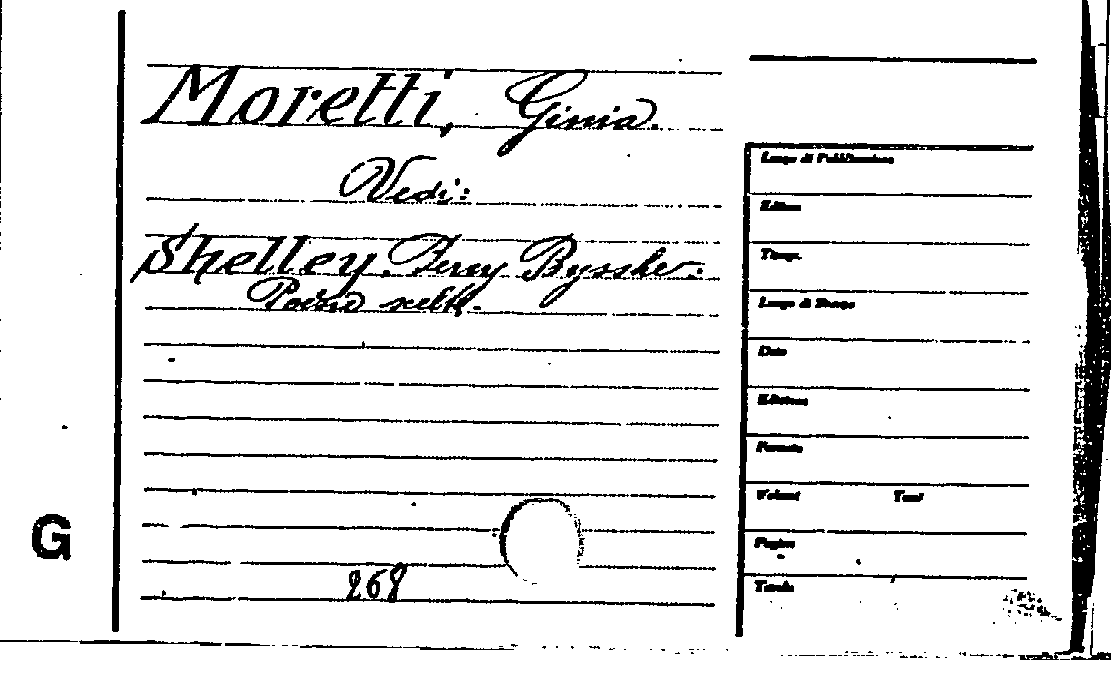 Moretti, Ginia.
Vedi:
Shelley, Percy Bysshe.
Poesie scelte.
268
G
Luogo di Pubblicazione
Editore
Tipogr.
Luogo di Stampa
Data
Edizione
Formato
Volumi Tomi
Pagine
Tavole